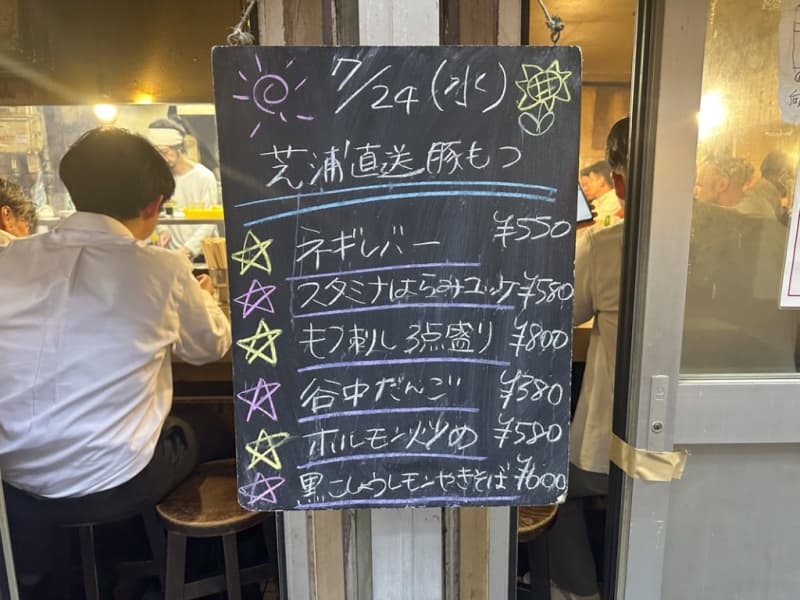 7/24(水)
芝浦直送豚もつ
ネギレバー ¥550
スタミナはらみユッケ ¥580
もつ刺し3点盛り ¥800
谷中だんご ¥380
ホルモン炒め ¥580
黒こしょうレモンやきそば ¥600